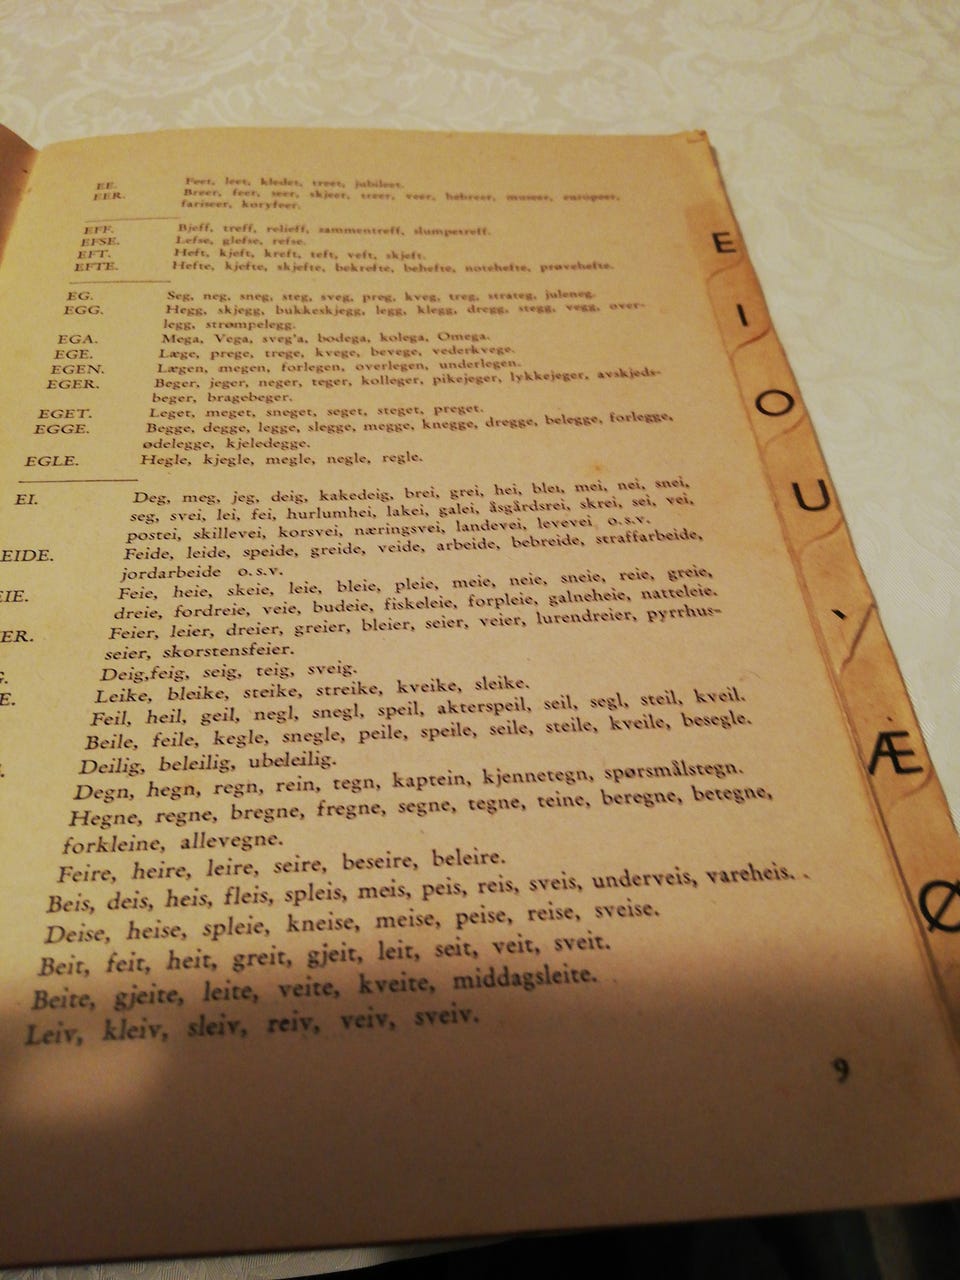 EE. Feet, leet, kledet, treet, jubileet.
EER. Breer, feer, seer, skjeer, treer, veer, hebreer, museer, europeer,
fariseer, koryfeer.
EFF. Bjeff, treff, relieff, sammentreff, slumpetreff.
EFSE. Lefse, glefse, refse.
EFT. Heft, kjeft, kreft, teft, veft, skjeft.
EFTE. Hefte, kjefte, skjefte, bekrefte, behefte, notehefte, prøvehefte.
EG. Seg, neg, sneg, steg, sveg, preg, kveg, treg, strateg, juleneg.
EGG. Hegg, skjegg, bukkeskjegg, legg, klegg, dregg, stegg, vegg, over-
legg, strømpelegg.
EGA. Mega, Vega, sveg'a, bodega, kolega, Omega.
EGE. Læge, prege, trege, kvege, bevege, vederkvege.
EGEN. Lægen, megen, forlegen, overlegen, underlegen.
EGER. Beger, jeger, neger, teger, kolleger, pikejeger, lykkejeger, avskjeds-
beger, bragebeger.
EGET. Leget, meget, sneget, seget, steget, preget.
EGGE. Begge, degge, legge, slegge, megge, knegge, dregge, belegge, forlegge,
ødelegge, kjeledegge.
EGLE. Hegle, kjegle, megle, negle, regle.
EI. Deg, meg, jeg, deig, kakedeig, brei, grei, hei, blei, mei, nei, snei,
seg, svei, lei, fei, hurlumhei, lakei, galei, åsgårdsrei, skrei, sei, vei,
postei, skillevei, korsvei, næringsvei, landevei, levevei o.s.v.
EIDE. Feide, leide, speide, greide, veide, arbeide, bebreide, straffarbeide,
jordarbeide o.s.v.
EIE. Feie, heie, skeie, leie, bleie, pleie, meie, neie, sneie, reie, greie,
dreie, fordreie, veie, budeie, fiskeleie, forpleie, galneheie, natteleie.
ER. Feier, leier, dreier, greier, bleier, seier, veier, lurendreier, pyrrhus-
seier, skorstensfeier.
G. Deig,feig, seig, teig, sveig.
E. Leike, bleike, steike, streike, kveike, sleike.
Feil, heil, geil, negl, snegl, speil, akterspeil, seil, segl, steil, kveil.
Beile, feile, kegle, snegle, peile, speile, seile, steile, kveile, besegle.
Deilig, beleilig, ubeleilig.
Degn, hegn, regn, rein, tegn, kaptein, kjennetegn, spørsmålstegn.
Hegne, regne, bregne, fregne, segne, tegne, teine, beregne, betegne,
forkleine, allevegne.
Feire, heire, leire, seire, beseire, beleire.
Beis, deis, heis, fleis, spleis, meis, peis, reis, sveis, underveis, vareheis.
Deise, heise, spleie, kneise, meise, peise, reise, sveise.
Beit, feit, heit, greit, gjeit, leit, seit, veit, sveit.
Beite, gjeite, leite, veite, kveite, middagsleite.
Leiv, kleiv, sleiv, reiv, veiv, sveiv.
9
E
I
O
U
Æ
Ø